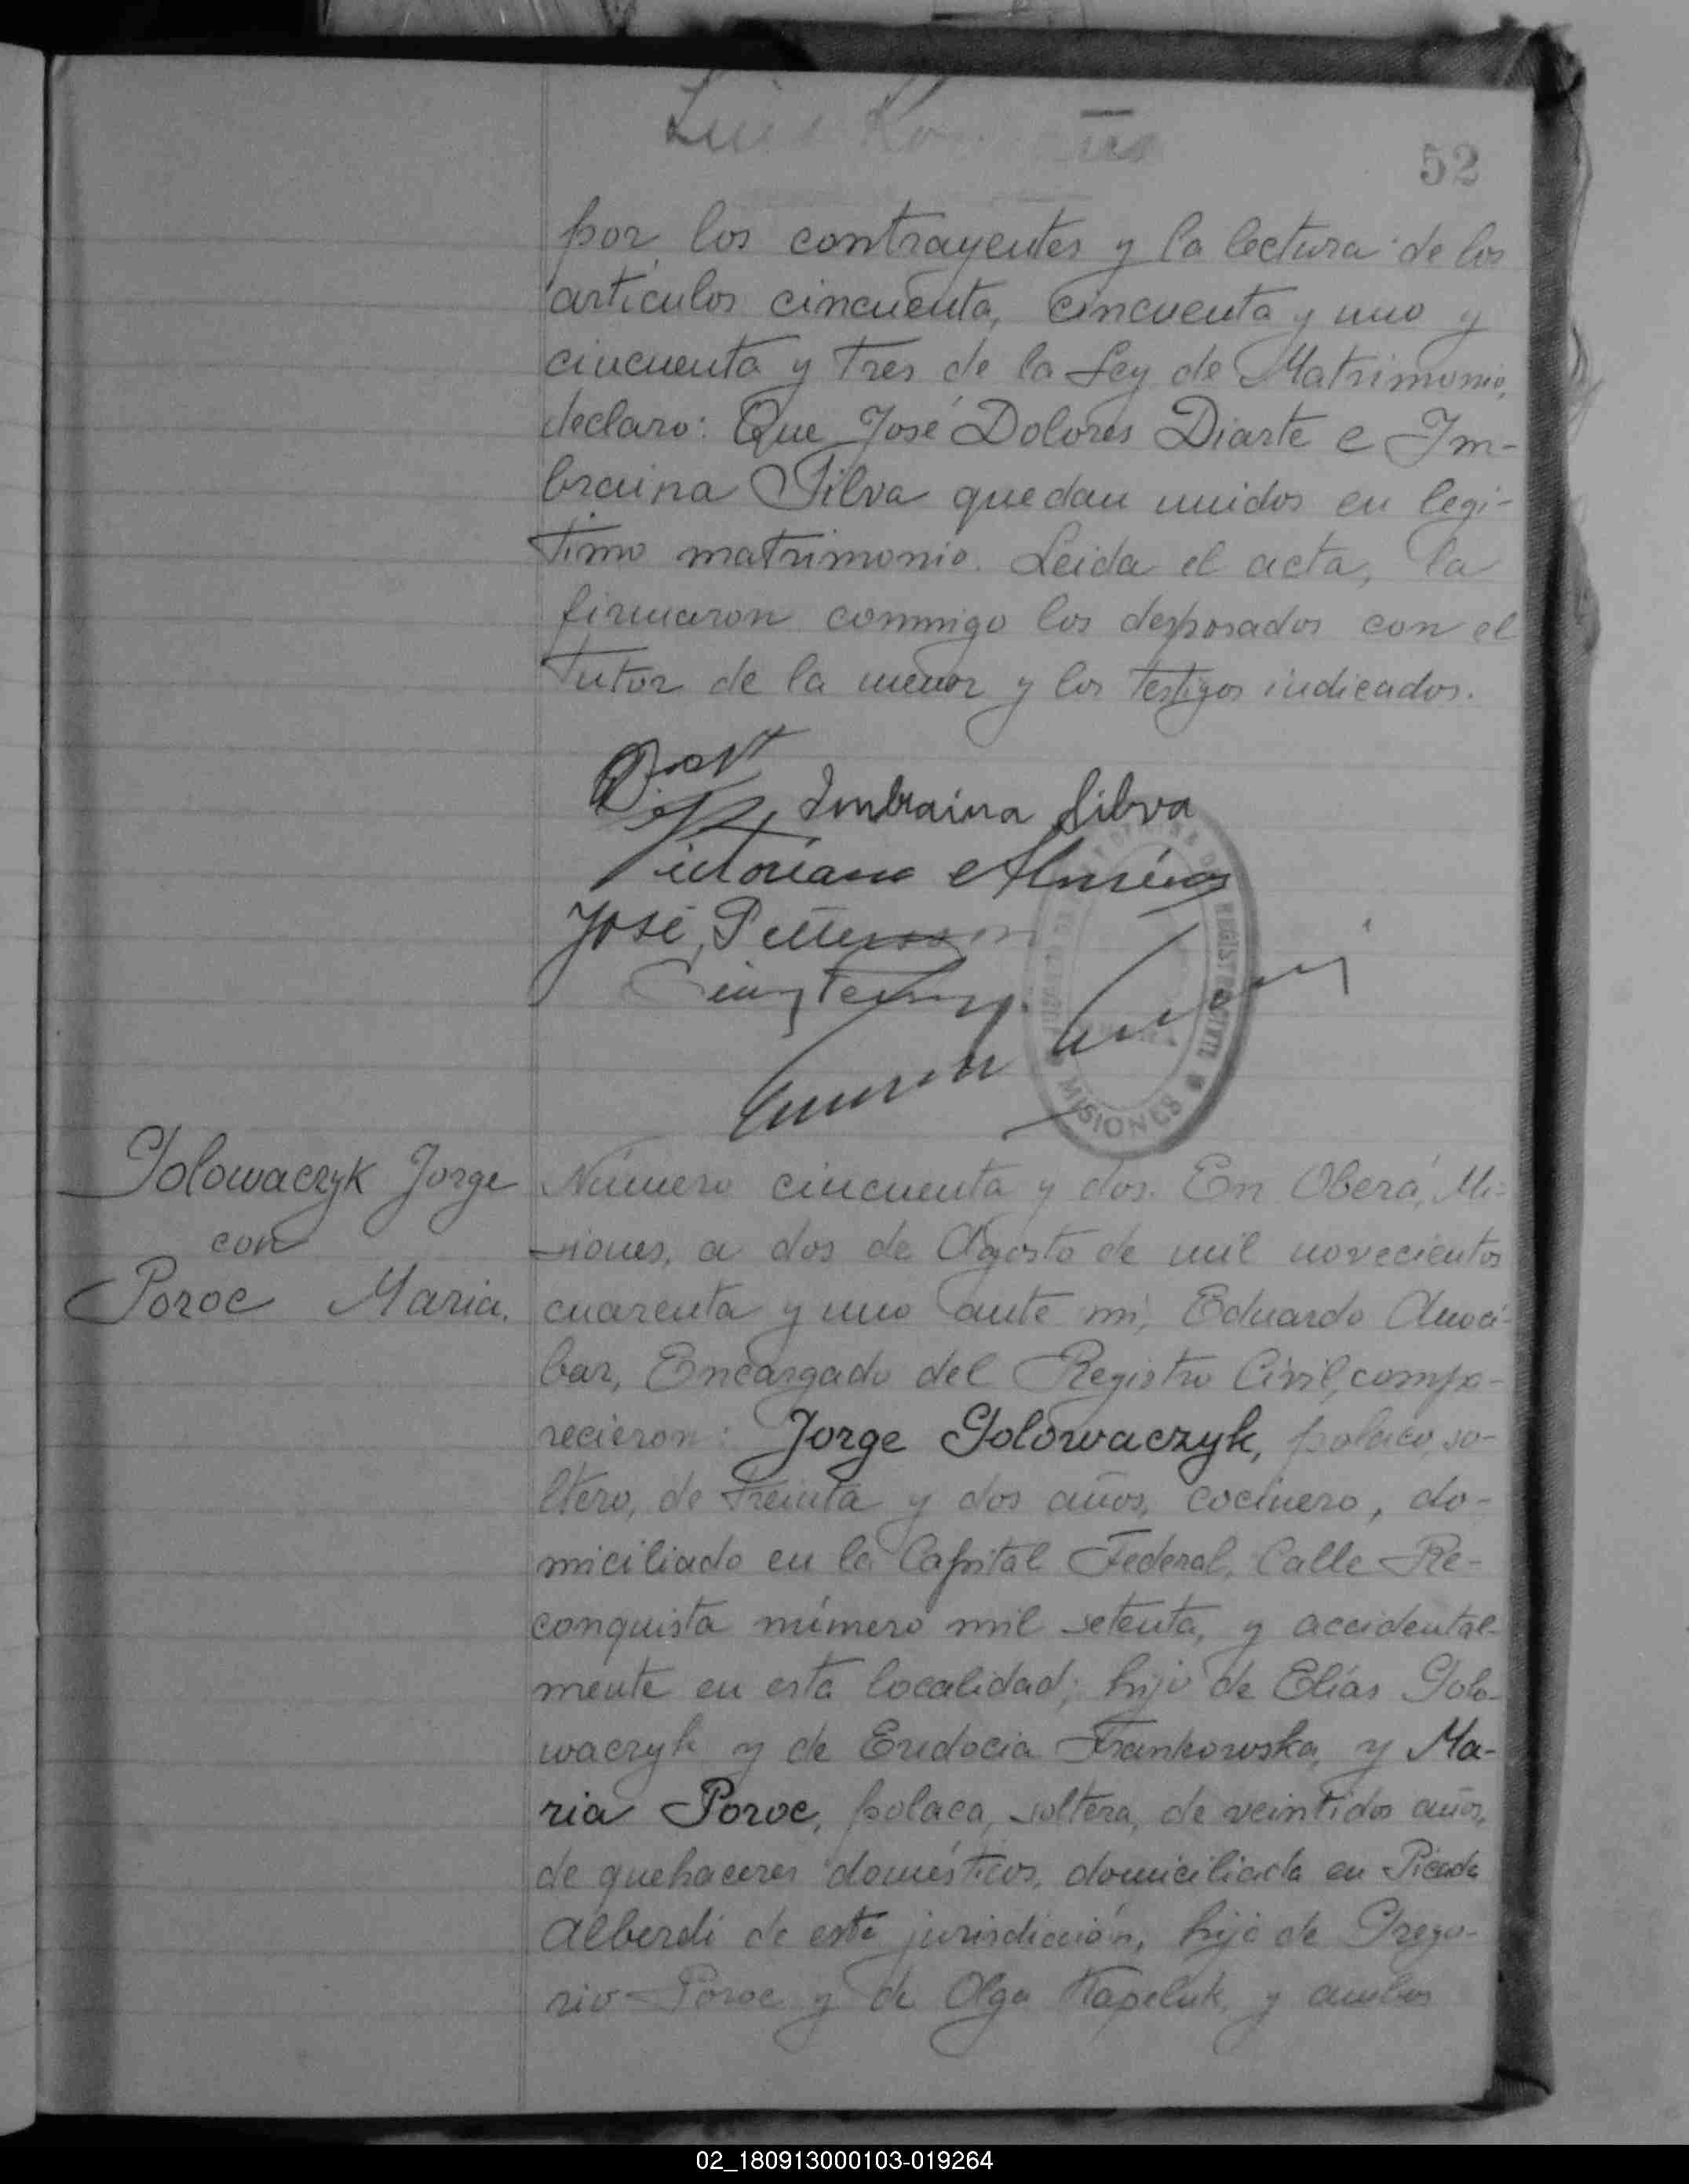 Luis
52
por los contrayentes y la lectura de los
artículos cincuenta, cincuenta y uno y
cincuenta y tres de la Ley de Matrimonio,
declaro: Que José Dolores Diarte e Im-
braina Silva quedan unidos en legi-
timo matrimonio. Leida el acta, la
firmaron conmigo los desposados con el
tutor de la menor y los testigos indicados.
Imbraina Silva
José
REGISTRO CIVIL
MISIONES
Golowaczyk Jorge
con
Poroc Maria.
Número cincuenta y dos. En Oberá, Mi-
siones, a dos de Agosto de mil novecientos
cuarenta y uno ante mi, Eduardo Amoci-
bar, Encargado del Registro Civil, compa-
recieron: Jorge Golowaczyk, polaco, so-
ltero, de treinta y dos años, cocinero, do-
miciliado en la Capital Federal, Calle Re-
conquista número mil setenta, y accidental-
mente en esta localidad; hijo de Elías Golo-
waczyk y de Eudocia Frankowska, y Ma-
ria Poroc, polaca, soltera, de veintidos años,
de quehaceres domésticos, domiciliada en Picada
Alberdi de esta jurisdicción, hija de Grego-
rio Poroc y de Olga Kapeluk, y ambos
02_180913000103-019264